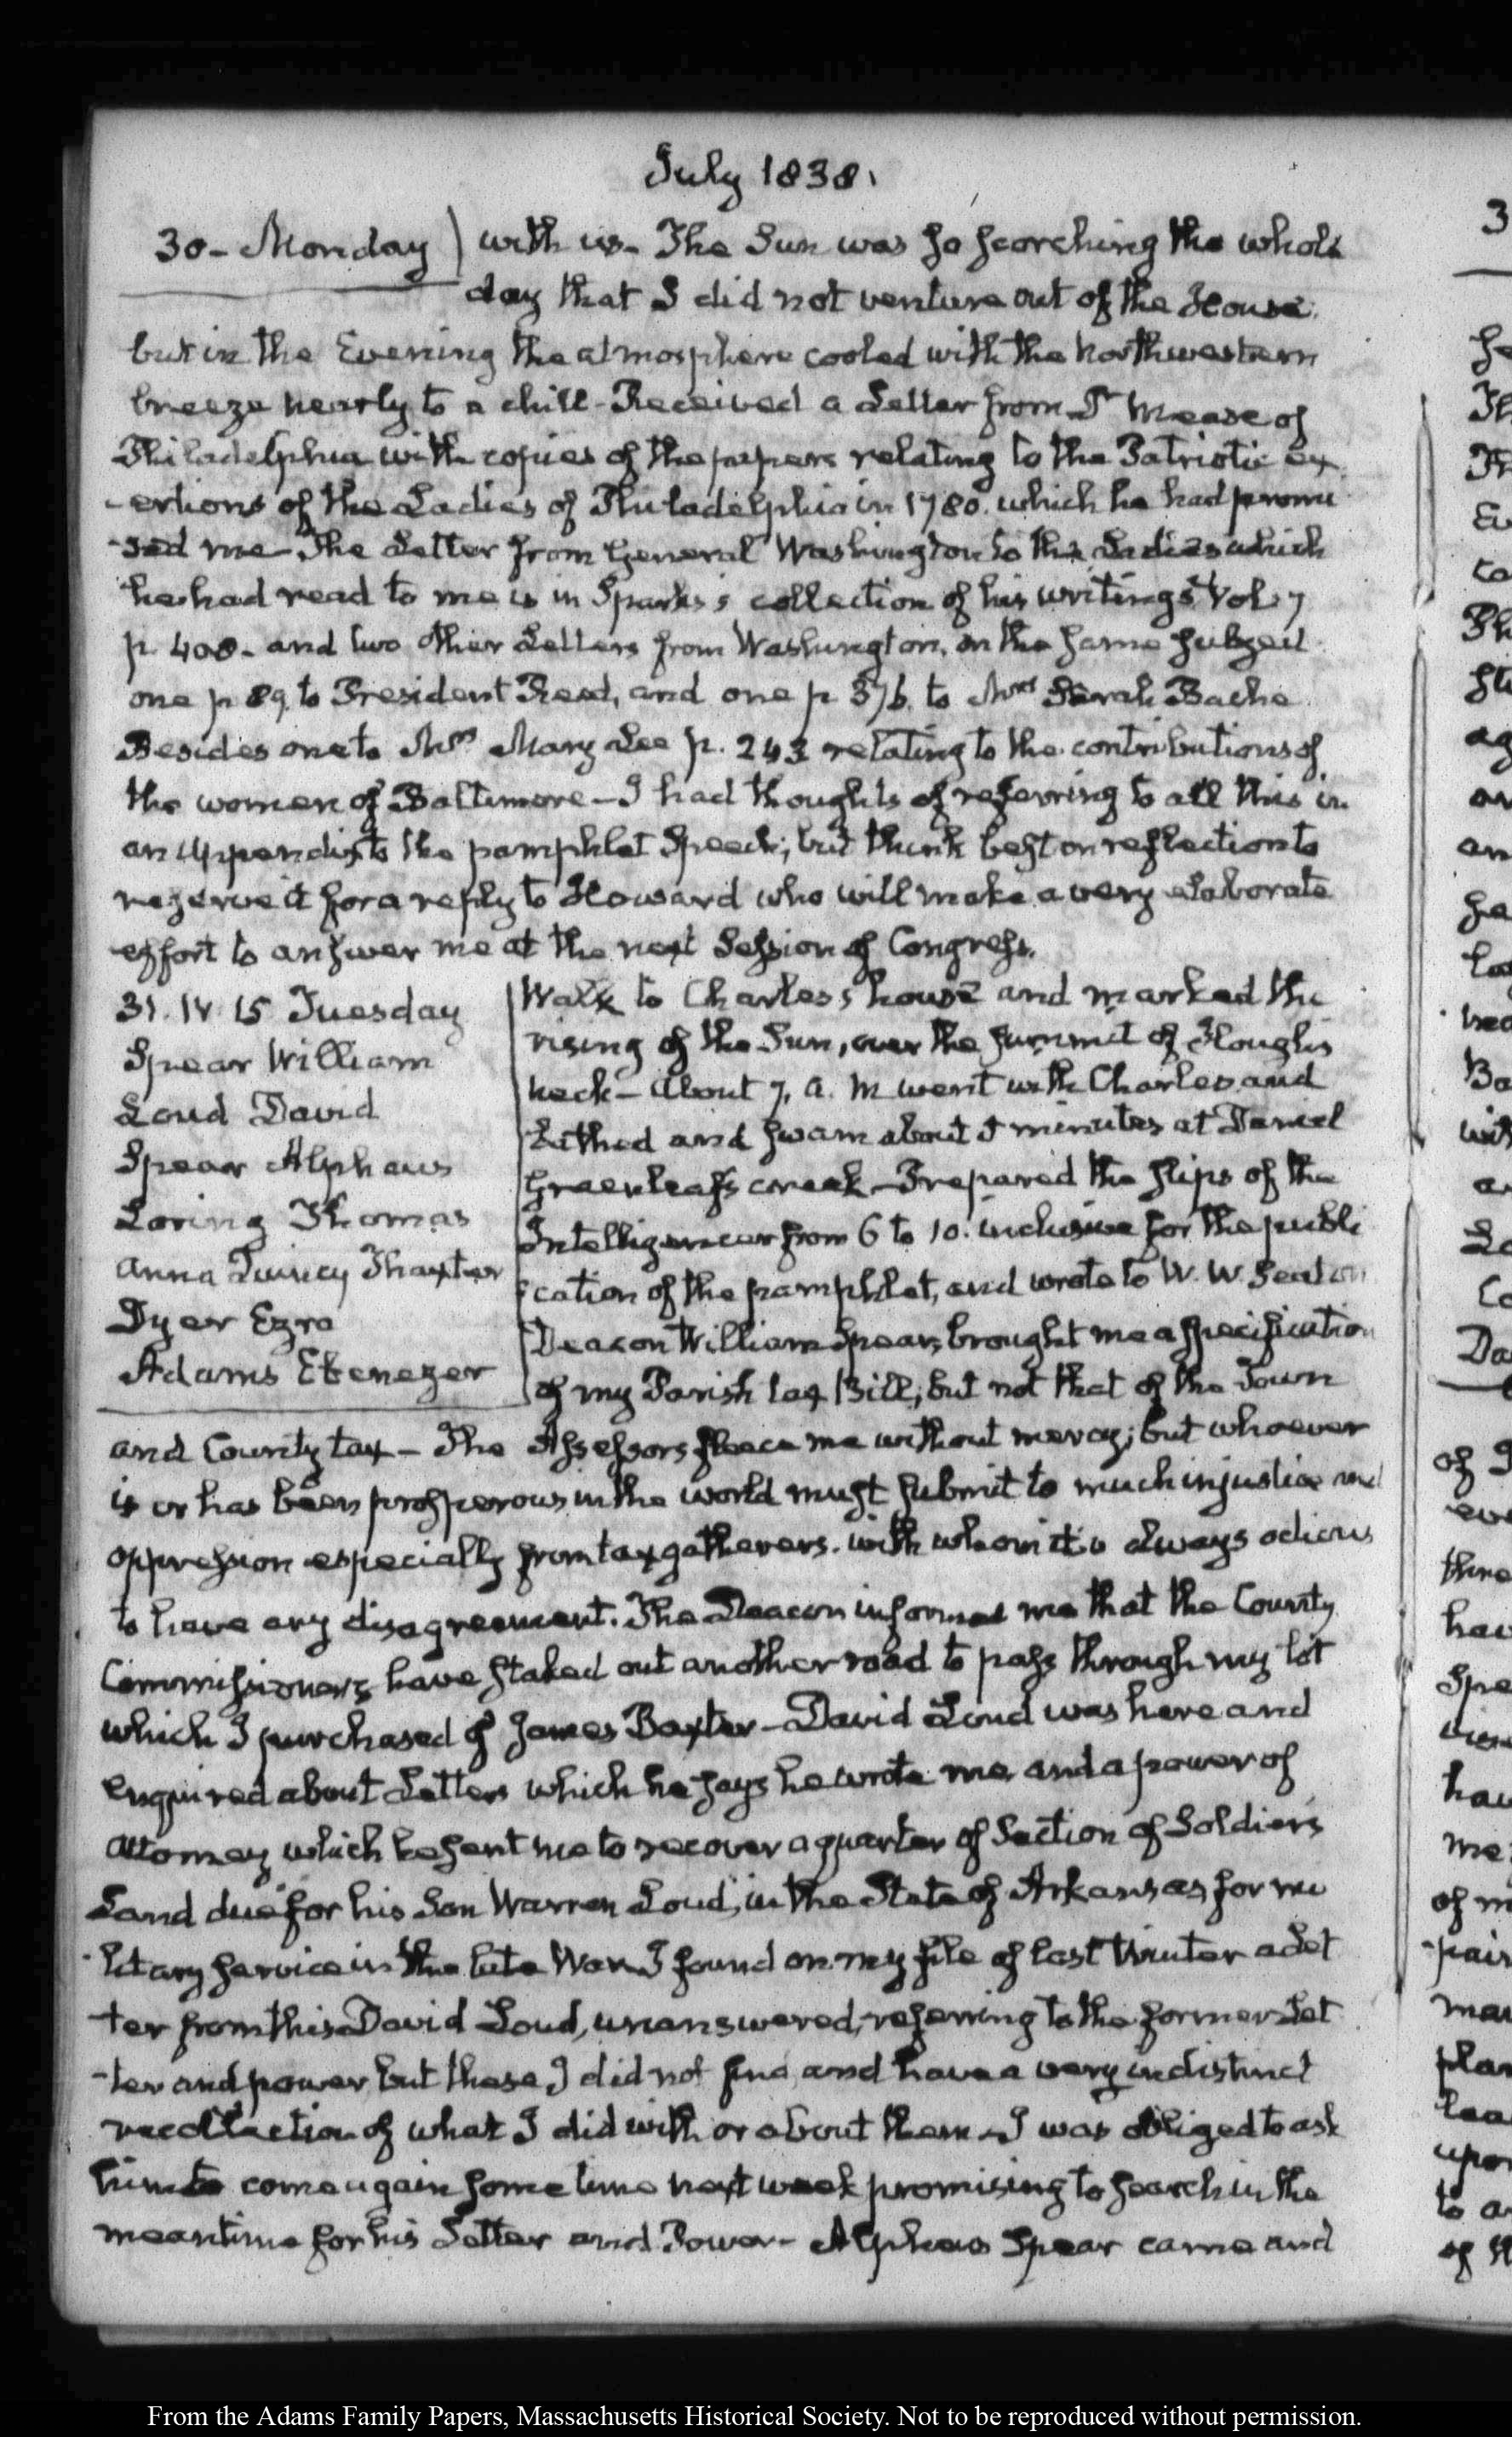 July 1838.
30 - Monday
with us - The Sun was so scorching the whole
day that I did not venture out of the House:
but in the Evening the atmosphere cooled with the Northwestern
breeze nearly to a chill - Received a Letter from Dr Mease of
Philadelphia with copies of the papers relating to the Patriotic ex
-ertions of the Ladies of Philadelphia in 1780. which he had promi
-sed me - The Letter from General Washington to the Ladies which
he had read to me is in Sparks's collection of his writings Vol. 7
p. 408 - and two other Letters from Washington, on the same subject
one p 89. to President Reed, and one p 376. to Mrs Sarah Bache
Besides one to Mrs Mary Lee p. 243 relating to the contributions of
the women of Baltimore - I had thoughts of referring to all this in
an Appendix to the pamphlet Speech; but think best on reflection to
reserve it for a reply to Howard who will make a very elaborate
effort to answer me at the next Session of Congress.
31. IV. 15 Tuesday
Spear William
Loud David
Spear Alpheus
Loring Thomas
Anna Quincy Thaxter
Dyer Ezra
Adams Ebenezer
Walk to Charles's house and marked the
rising of the Sun, over the summit of Hough's
neck - About 7. A. M. went with Charles and
bathed and swam about minutes at Daniel
Greenleaf's creek - Prepared the slips of the
Intelligencer from 6 to 10. inclusive for the publi
cation of the pamphlet, and wrote to W. W. Seaton
Deacon William Spear, brought me a specification
of my Parish tax Bill; but not that of the Town
and County tax - The Assessors fleece me without mercy; but whoever
is or has been prosperous in the world must submit to much injustice and
oppression especially from taxgatherers. with whom it is always odious
to have any disagreement. The Deacon informed me that the County
Commissioners have staked out another road to pass through my lot
which I purchased of James Baxter - David Loud was here and
enquired about Letters which he says he wrote me, and a power of
attorney which he sent me to recover a quarter of Section of Soldiers
Land due for his Son Warren Loud, in the State of Arkansas for mi
litary service in the late War. I found on my file of last Winter a Let
ter from this David Loud, unanswered, referring to the former Let
-ter and power, but these I did not find and have a very indistinct
recollection of what I did with or about them - I was obliged to ask
him to come again some time next week promising to search in the
meantime for his Letter and Power - Alpheus Spear came and
From the Adams Family Papers, Massachusetts Historical Society. Not to be reproduced without permission.